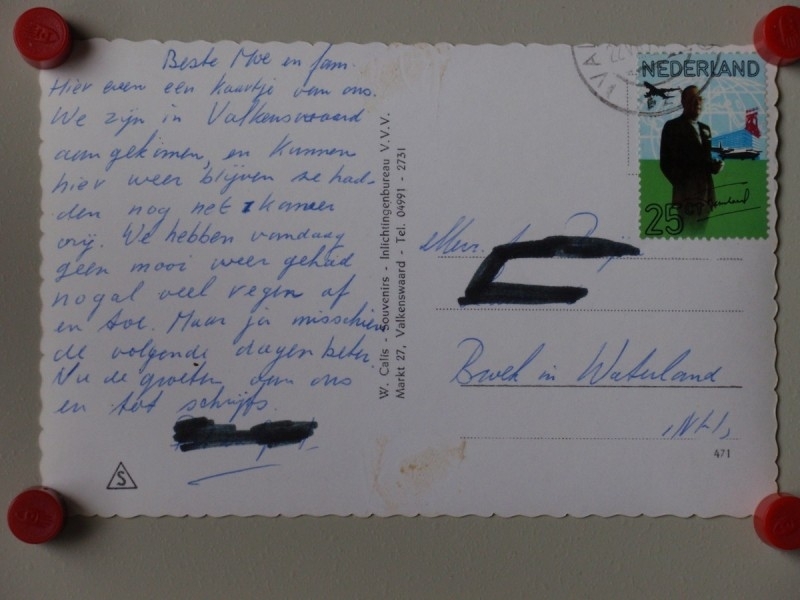 Beste Moe en fam.
Hier even een kaartje van ons.
We zijn in Valkenswaard
aangekomen, en kunnen
hier weer blijven ze had-
den nog net 1 kamer
vrij. We hebben vandaag
geen mooi weer gehad
nogal veel regen af
en toe. Maar ja misschien
de volgende dagen beter.
Nu de groeten van ons
en tot schrijfs.
S
W. Calis - Souvenirs - Inlichtingenbureau V.V.V.
Markt 27, Valkenswaard - Tel. 04991 - 2731
NEDERLAND
25
Mevr.
Broek in Waterland
(NH)
471